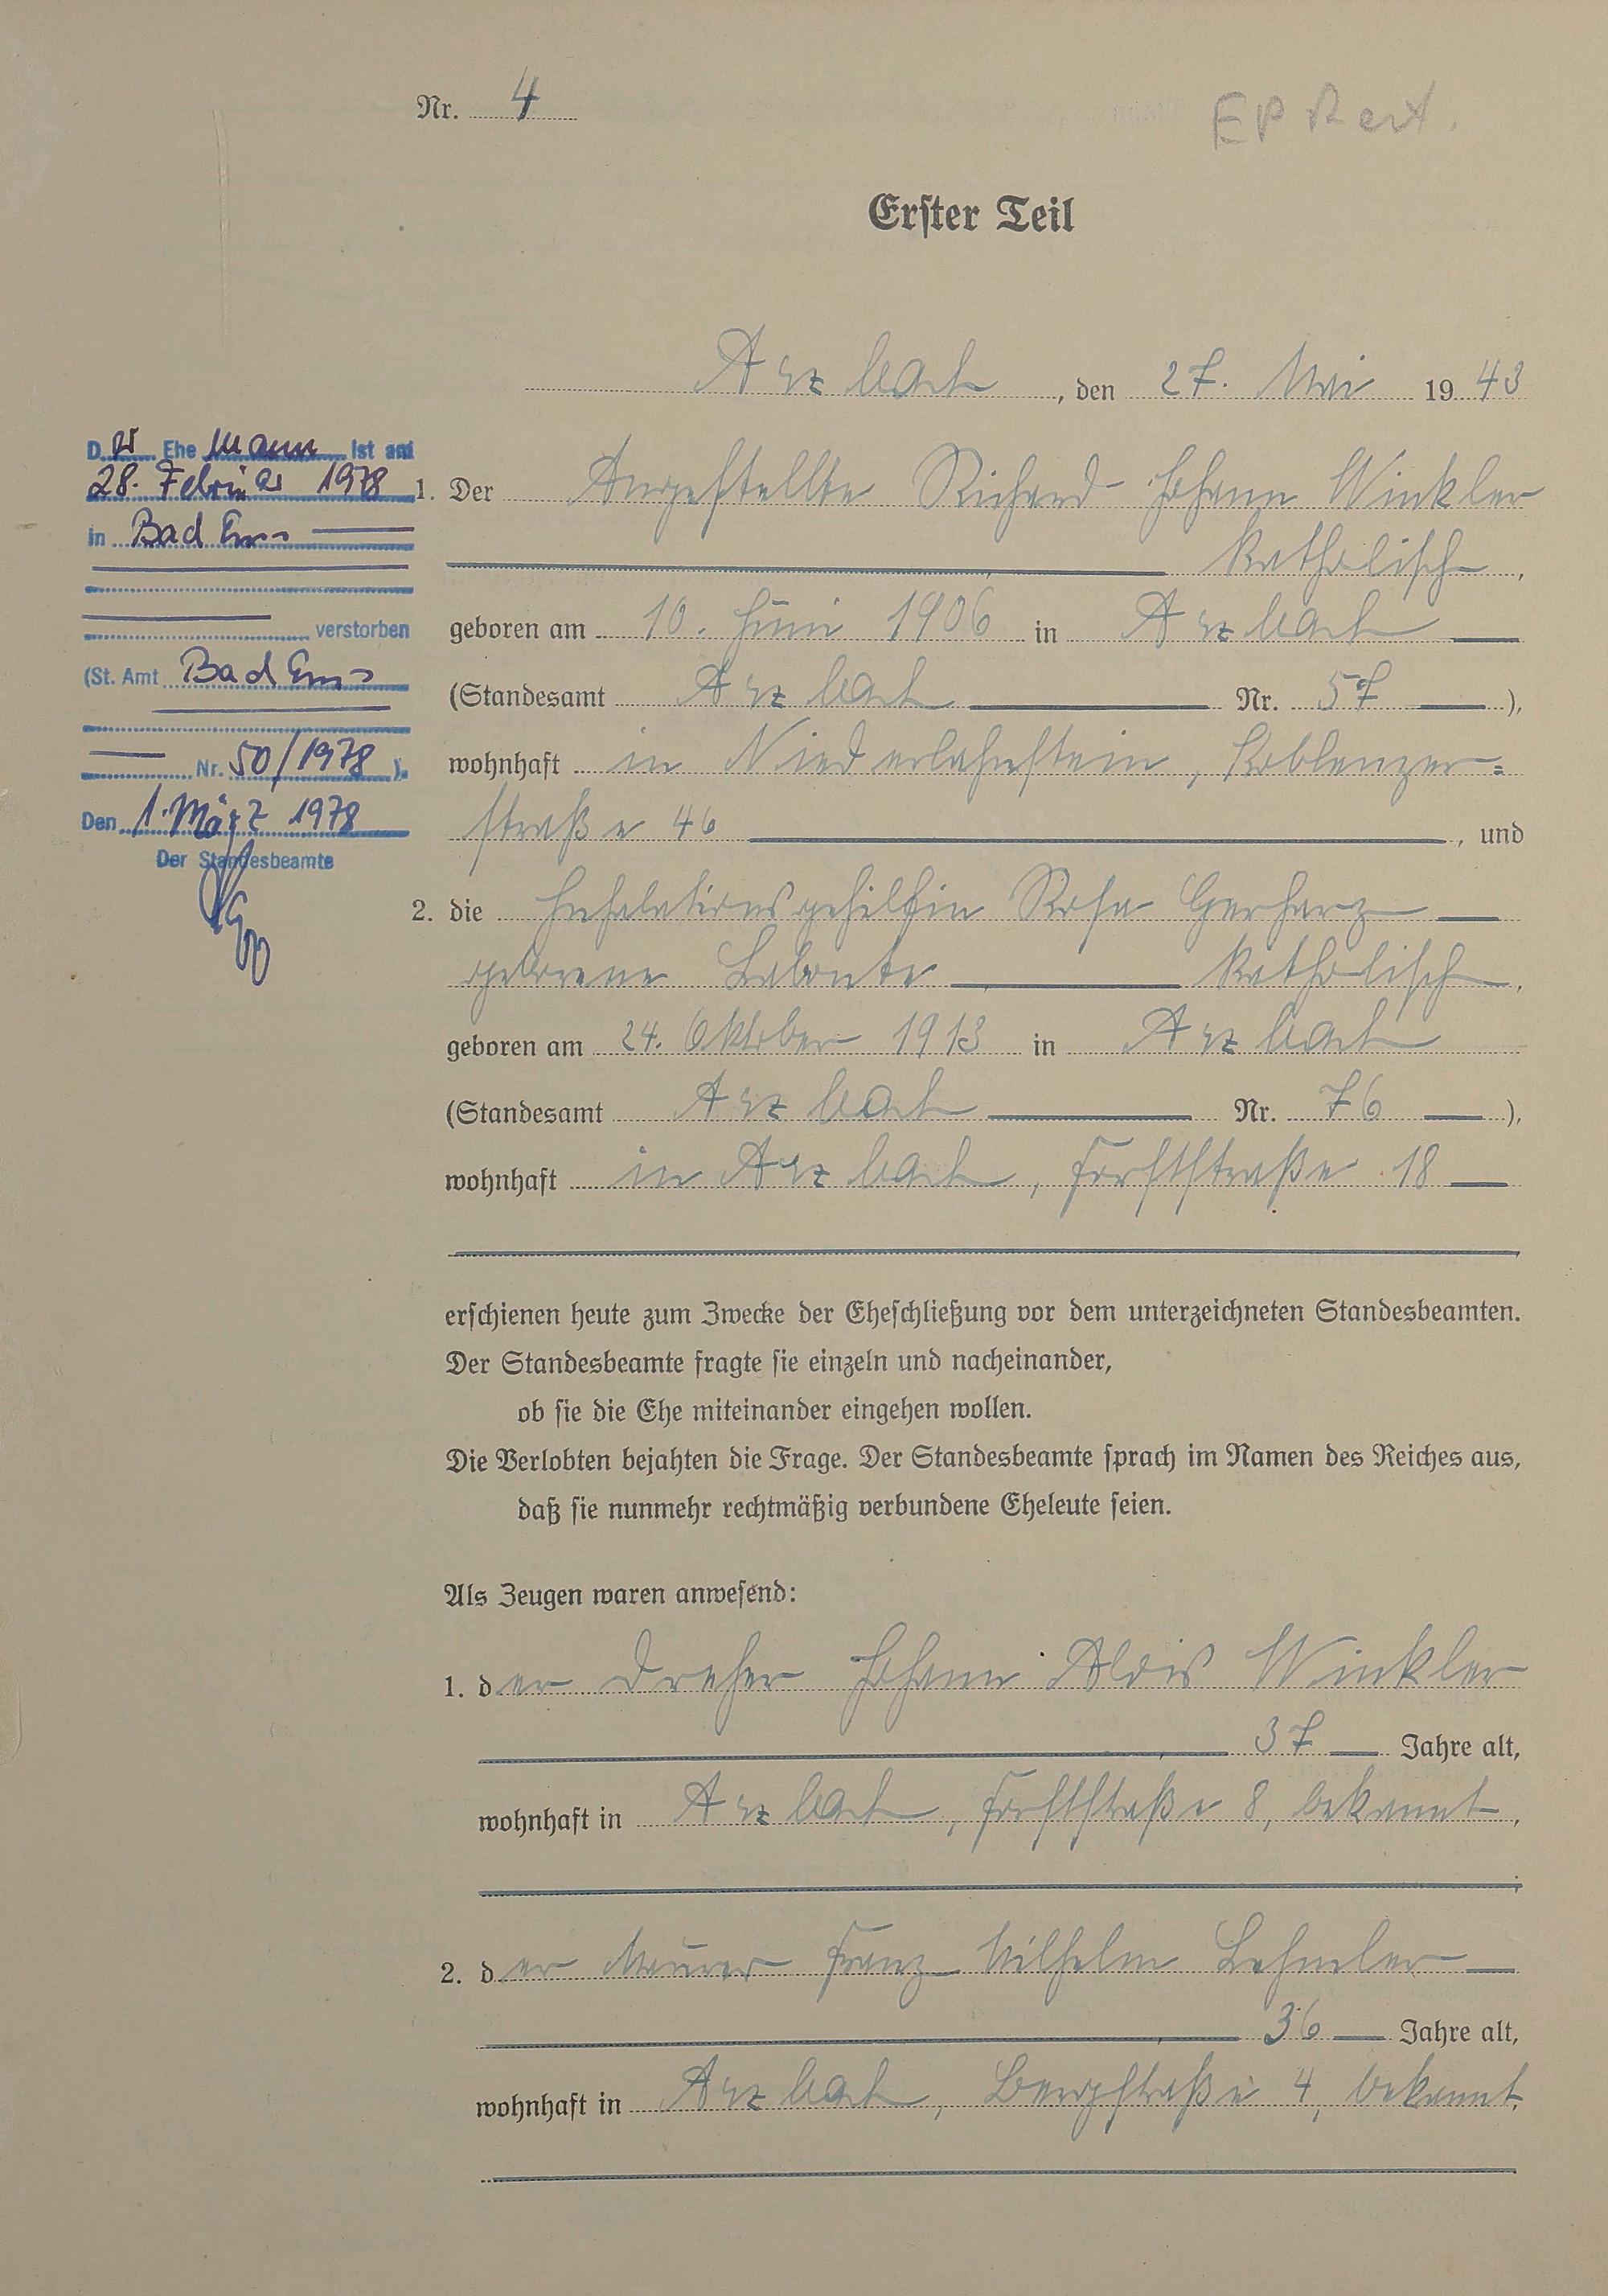 Nr. 4
EP Reit.
Erster Teil
Arzbach, den 27. Mai 1943
D.er Ehe Mann ist am
28. Februar 1978
in Bad Ems
verstorben
(St. Amt Bad Ems
Nr. 50/1978 ).
Den 1. März 1978
Der Standesbeamte
1. Der Angestellte Richard Johann Winkler
katholisch,
geboren am 10. Juni 1906 in Arzbach
(Standesamt Arzbach Nr. 57 ),
wohnhaft in Niederlahnstein, Koblenzer=
straße 46, und
2. die Inhalationsgehilfin Rosa Gerharz
geborene Labonte katholisch,
geboren am 24. Oktober 1913 in Arzbach
(Standesamt Arzbach Nr. 76 ),
wohnhaft in Arzbach, Forststraße 18
erschienen heute zum Zwecke der Eheschließung vor dem unterzeichneten Standesbeamten.
Der Standesbeamte fragte sie einzeln und nacheinander,
ob sie die Ehe miteinander eingehen wollen.
Die Verlobten bejahten die Frage. Der Standesbeamte sprach im Namen des Reiches aus,
daß sie nunmehr rechtmäßig verbundene Eheleute seien.
Als Zeugen waren anwesend:
1. der Dreher Johann Alois Winkler
37 Jahre alt,
wohnhaft in Arzbach, Forststraße 8, bekannt,
;
2. der Maurer Franz Wilhelm Lehmler
36 Jahre alt,
wohnhaft in Arzbach, Bergstraße 4, bekannt.